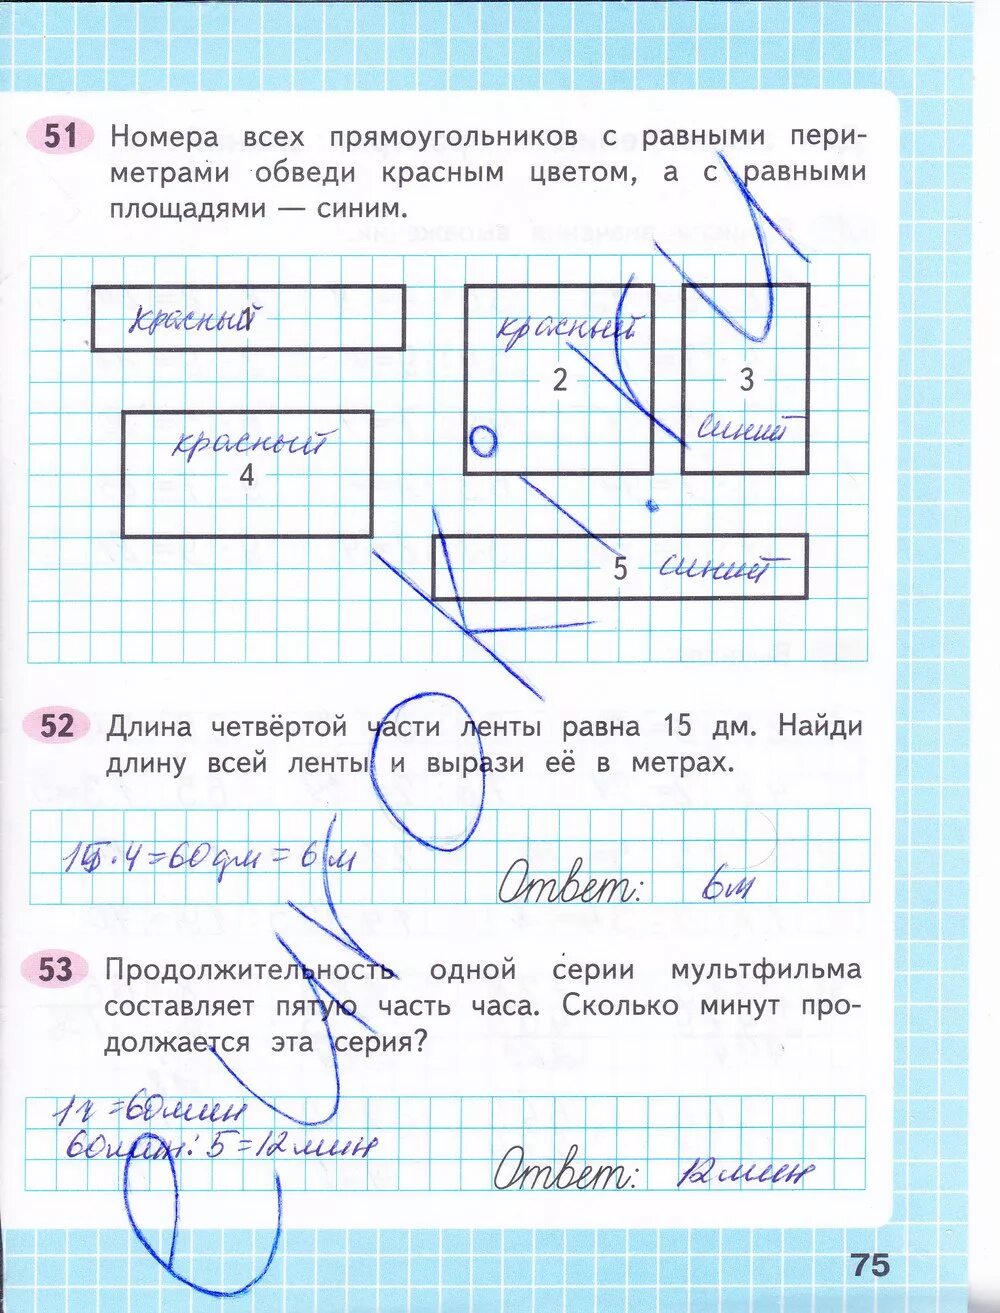 51 Номера всех прямоугольников с равными пери-
метрами обведи красным цветом, а с равными
площадями — синим.
красный
красный
2
3
синий
красный
4
5 синий
52 Длина четвёртой части ленты равна 15 дм. Найди
длину всей ленты и вырази её в метрах.
15·4=60дм=6м
Ответ: 6м
53 Продолжительность одной серии мультфильма
составляет пятую часть часа. Сколько минут про-
должается эта серия?
1ч=60мин
60мин:5=12мин
Ответ: 12мин
75